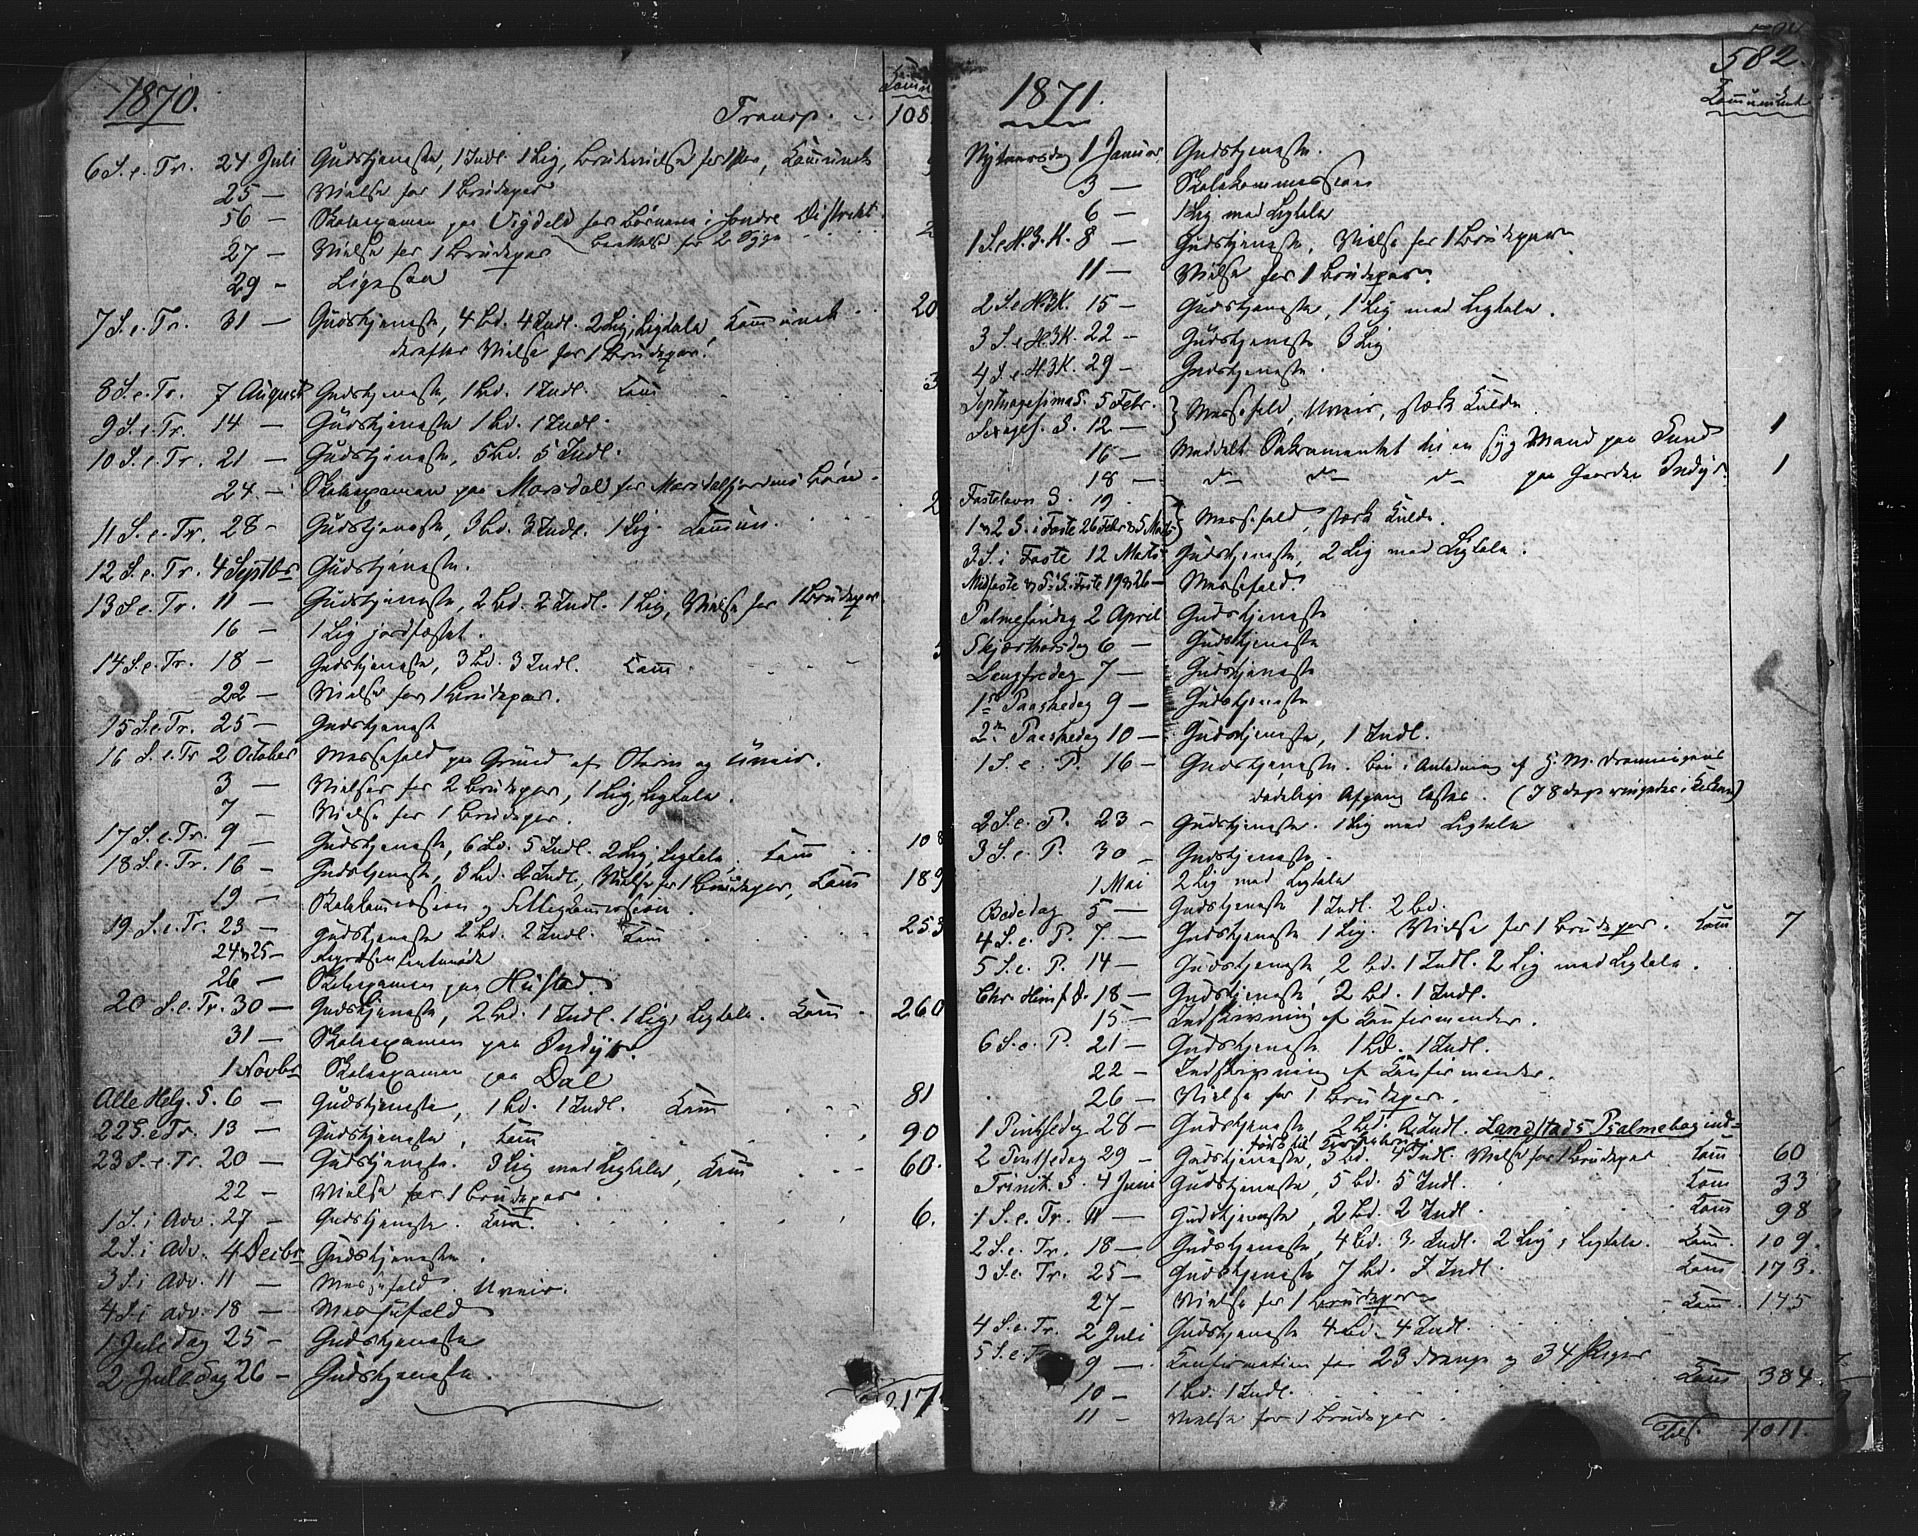 1870.
Transp. 108
6 S. e. Tr. 24 Juli Gudstjeneste, 1 Indl. 1 Lig, Brudevielse for 1 Par, Communik
25 — Vielse for 1 Brudepar
56 — Skoleexamen paa Vigdeld for Børnene i Søndre Distrikt. 2
27 — Vielse for 1 Brudepar
29 -
7 S. e. Tr. 31 — Gudstjeneste, 4 Bd. 4 Indl. 2 Lig, Ligtale, Communik. 20
derefter Vielse for 1 Brudepar.
8 S. e. Tr. 7 August Gudstjeneste, 1 Bd. 1 Indl. Com 3
9 S. e. Tr. 14 — Gudstjeneste 1 Bd. 1 Indl.
10 S. e. Tr. 21 — Gudstjeneste, 5 Bd. 5 Indl.
24 — Skoleexamen paa Marsdal for Børn.
11 S. e. Tr. 28 - Gudstjeneste, 3 Bd. 3 Indl. 1 Lig. Commun. 2
12 S. e. Tr. 4 Septbr Gudstjeneste.
13 S. e. Tr. 11 — Gudstjeneste, 2 Bd. 2 Indl. 1 Lig, Vielse for 1 Brudepar
16 — 1 Lig jordfæstet.
14 S. e. Tr. 18 — Gudstjeneste, 3 Bd. 3 Indl. Com.
22 — Vielse for 1 Brudepar.
15 S. e. Tr. 25 — Gudstjeneste
16 S. e. Tr 2 October Messefald paa Grund af Storm og Uveir.
3 — Vielser for 2 Brudepar, 1 Lig, Ligtale.
7 — Vielse for 1 Brudepar.
17 S. e. Tr. 9 — Gudstjeneste, 6 Bd. 5 Indl. 2 Lig, Ligtale. Com 108
18 S. e. Tr. 16 — Gudstjeneste, 3 Bd. Indl., Vielse for 1 Brudepar, Com 189
19 — Skolecommission og Fattigcommission.
19 S. e. Tr. 23 — Gudstjeneste 2 Bd. 2 Indl. Com 253
24 & 25 —
26 — Skoleexamen paa Hustad.
20 S. e. Tr. 30 — Gudstjeneste, 2 Bd. 1 Indl. 1 Lig, Ligtale. Com. 260
31 — Skoleexamen paa Indyr.
1 Novbr Skoleexamen paa Dal
Alle Helg. S. 6 — Gudstjeneste, 1 Bd. 1 Indl. Com 81
22 S. e Tr. 13 — Gudstjeneste, Com 90
23 S. e. Tr. 20 — Gudstjeneste. 3 Lig med Ligtale, Com 60.
22 — Vielse for 1 Brudepar.
1 S. i Adv. 27 — Gudstjeneste. Com. 6.
2 S. i Adv. 4 Decbr Gudstjeneste.
3 S. i Adv. 11 — Messefald. Uveir.
4 S. i Adv. 18 — Messefald
1 Juledag 25 — Gudstjeneste
2 Juledag 26 — Gudstjeneste.
217
582.
1871.
Communik
Nytaarsdag 1 Januar Gudstjeneste.
3 — Skolekommission
6 — 1 Lig med Ligtale
1 S. e H. 3. K. 8 — Gudstjeneste, Vielse for 1 Brudepar
11 — Vielse for 1 Brudepar.
2 S. e H. 3 K. 15 — Gudstjeneste, 1 Lig med Ligtale.
3 S. e H. 3 K. 22 — Gudstjeneste 3 Lig
4 S. e H. 3 K. 29 — Gudstjeneste.
Septuagesima S. 5 Febr. } Messefald, Uveir, stærk Kulde.
Sexages. S. 12 —
16 — Meddelt Sakramentet til en syg Mand paa Sund 1
18 — do do do paa Gaarden Indyr 1
Fastelavn S. 19.
1 & 2 S. i Faste 26 Febr & 5 Marts } Messefald, stærk Kulde.
3 S. i Faste 12 Marts Gudstjeneste, 2 Lig med Ligtale.
Midfaste & 5 S. i Faste 19 & 26 — Messefald.
Palmesøndag 2 April Gudstjeneste
Skjærthorsdag 6 — Gudstjeneste
Langfredag 7 — Gudstjeneste
1ste Paaskedag 9 — Gudstjeneste
2den Paaskedag 10 — Gudstjeneste, 1 Indl.
1 S. e. P. 16 — Gudstjeneste. Bøn i Anledning af H. M. Dronningens
dødelige Afgang læstes. (I 8 dage ringedes i Kirken)
2 S. e. P. 23 — Gudstjeneste. 1 Lig med Ligtale
3 S. e. P. 30 — Gudstjeneste.
1 Mai 2 Lig med Ligtale
Bededag 5 — Gudstjeneste 1 Indl. 2 Bd.
4 S. e. P. 7. — Gudstjeneste 1 Lig. Vielse for 1 Brudepar. Com 7
5 S. e. P. 14 — Gudstjeneste, 2 Bd. 1 Indl. 2 Lig med Ligtale.
Chr. Himf D. 18 — Gudstjeneste, 2 Bd. 1 Indl.
15 — Indskrivning af Konfirmander.
6 S. e. P. 21 — Gudstjeneste 1 Bd. 1 Indl.
22 — Indskrivning af Konfirmander.
26 — Vielse for 1 Brudepar.
1 Pintsedag 28 — Gudstjeneste, 2 Bd. 2 Indl. Landstads Psalmebog ind-
2 Pintsedag 29 — Gudstjeneste, 3 Bd. 4 Indl. Vielse for 1 Brudepar Com 60
Trinit. S. 4 Juni Gudstjeneste, 5 Bd. 5 Indl. Com 33
1 S. e. Tr. 11 — Gudstjeneste, 2 Bd. 2 Indl. Com 98
2 S. e. Tr. 18 — Gudstjeneste, 4 Bd. 3 Indl. 2 Lig, Ligtale. Com. 109.
3 S. e. Tr. 25 — Gudstjeneste 7 Bd. 7 Indl. Com 173.
27 — Vielse for 1 Brudepar Com. 175
4 S. e. Tr. 2 Juli Gudstjeneste 4 Bd. 4 Indl.
5 S. e. Tr 9 — Konfirmation for 23 Drenge og 34 Piger Com 384
10 — 1 Bd. 1 Indl.
11 — Vielse for 1 Brudepar.
Tils. 1011.